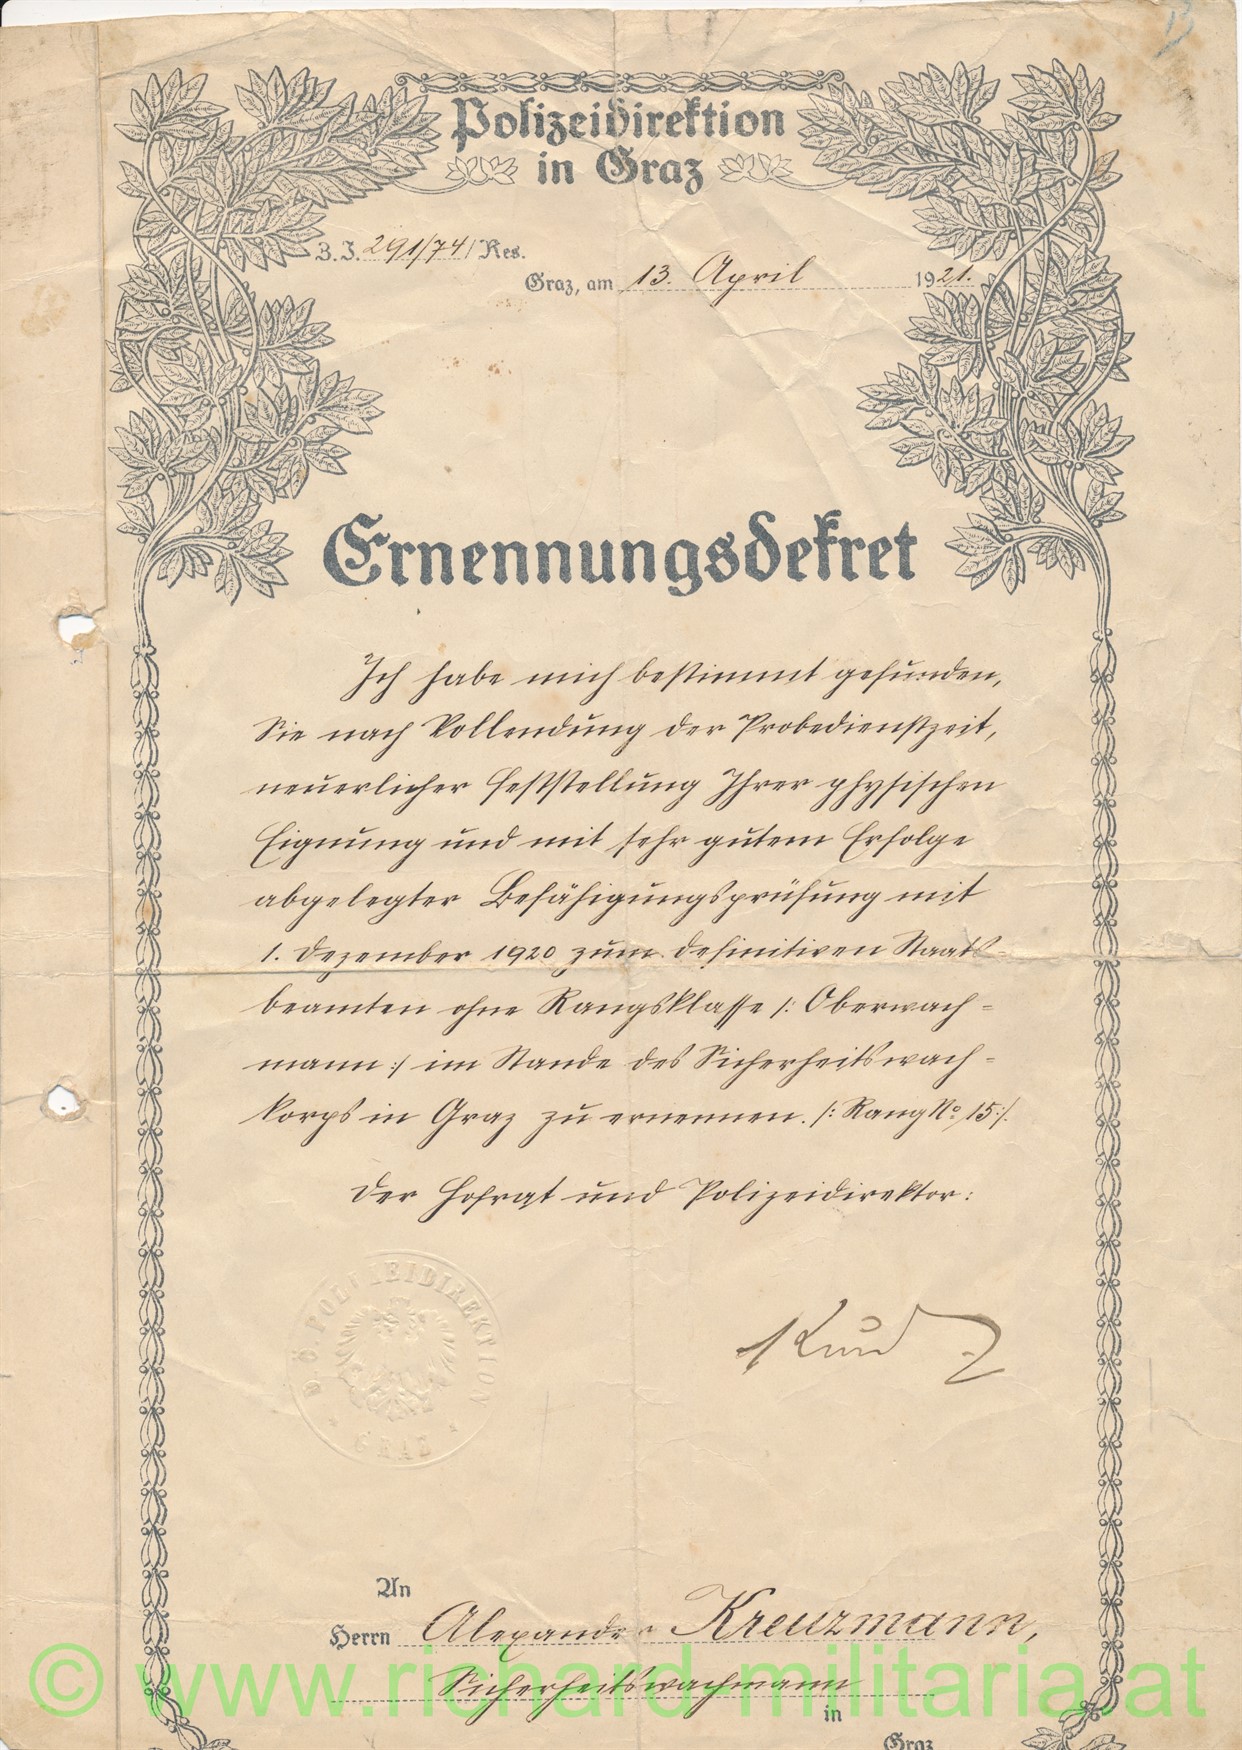 Polizeidirektion
in Graz
Z. I. 291/74/Res.
Graz, am 13. April 1921.
Ernennungsdekret
Ich habe mich bestimmt gefunden,
Sie nach Vollendung der Probedienstzeit,
neuerlicher Feststellung Ihrer physischen
Eignung und mit sehr gutem Erfolge
abgelegter Befähigungsprüfung mit
1. Dezember 1920 zum definitiven Staats-
beamten ohne Rangsklasse /: Oberwach-
mann :/ im Stande des Sicherheitswach-
korps in Graz zu ernennen. /: Rang No 15 :/.
Der Hofrat und Polizeidirektor:
D. Ö. POLIZEIDIREKTION
* GRAZ *
An
Herrn Alexander Kreuzmann,
Sicherheitswachmann
in
Graz
© www.richard-militaria.at